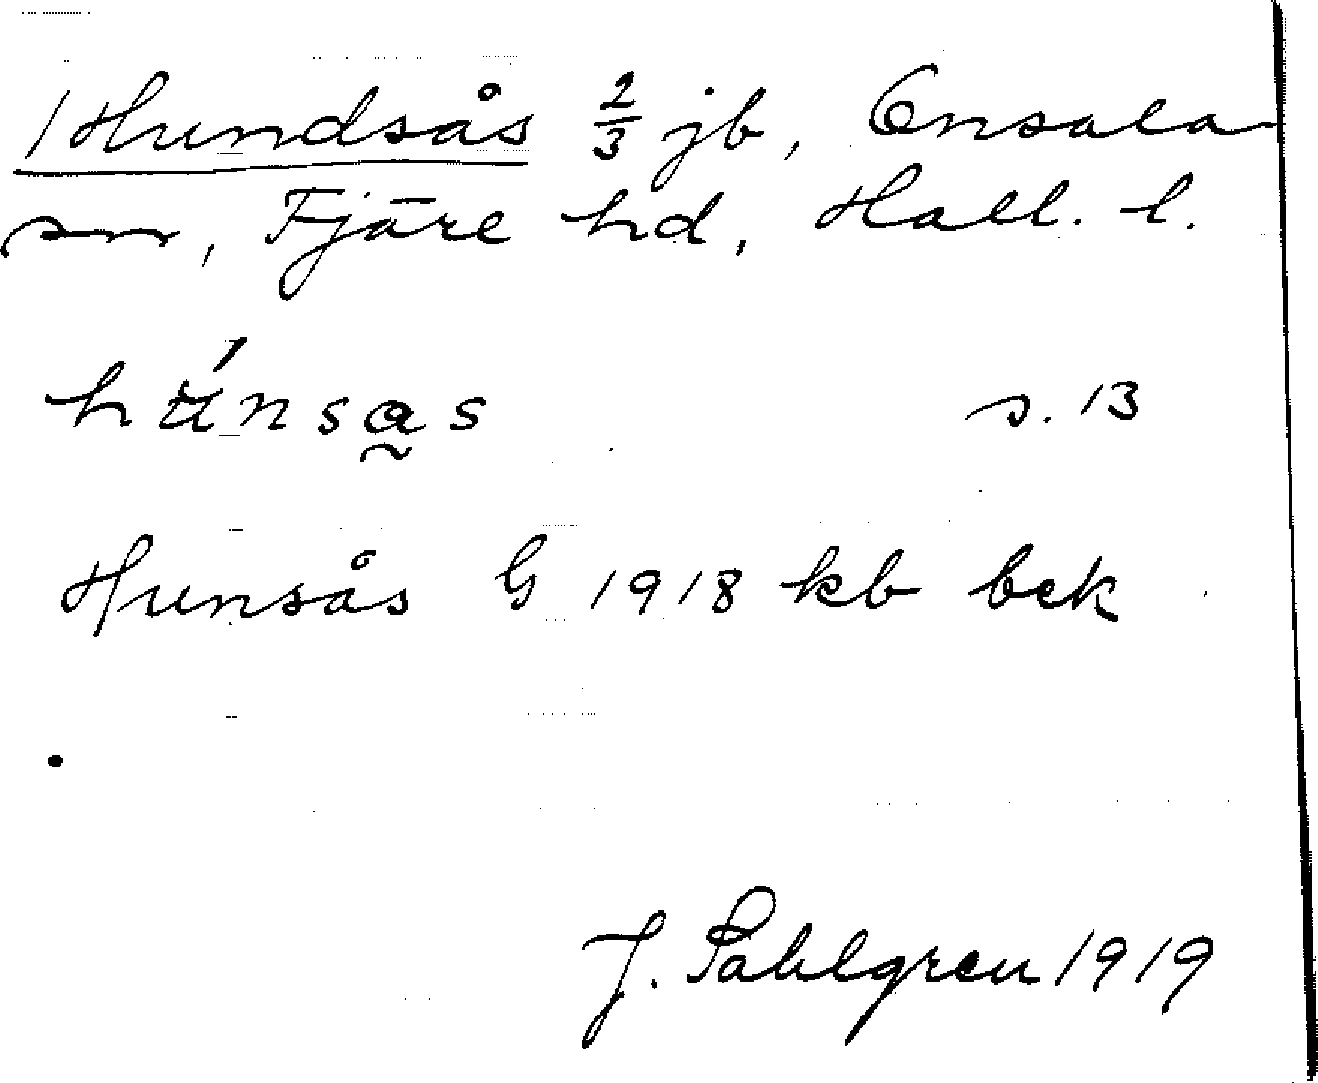 /Hundsås 2/3 jb, Onsala
sn, Fjäre hd, Hall. l.
hu̍nsas s. 13
Hunsås G 1918 kb bek
J. Sahlgren 1919